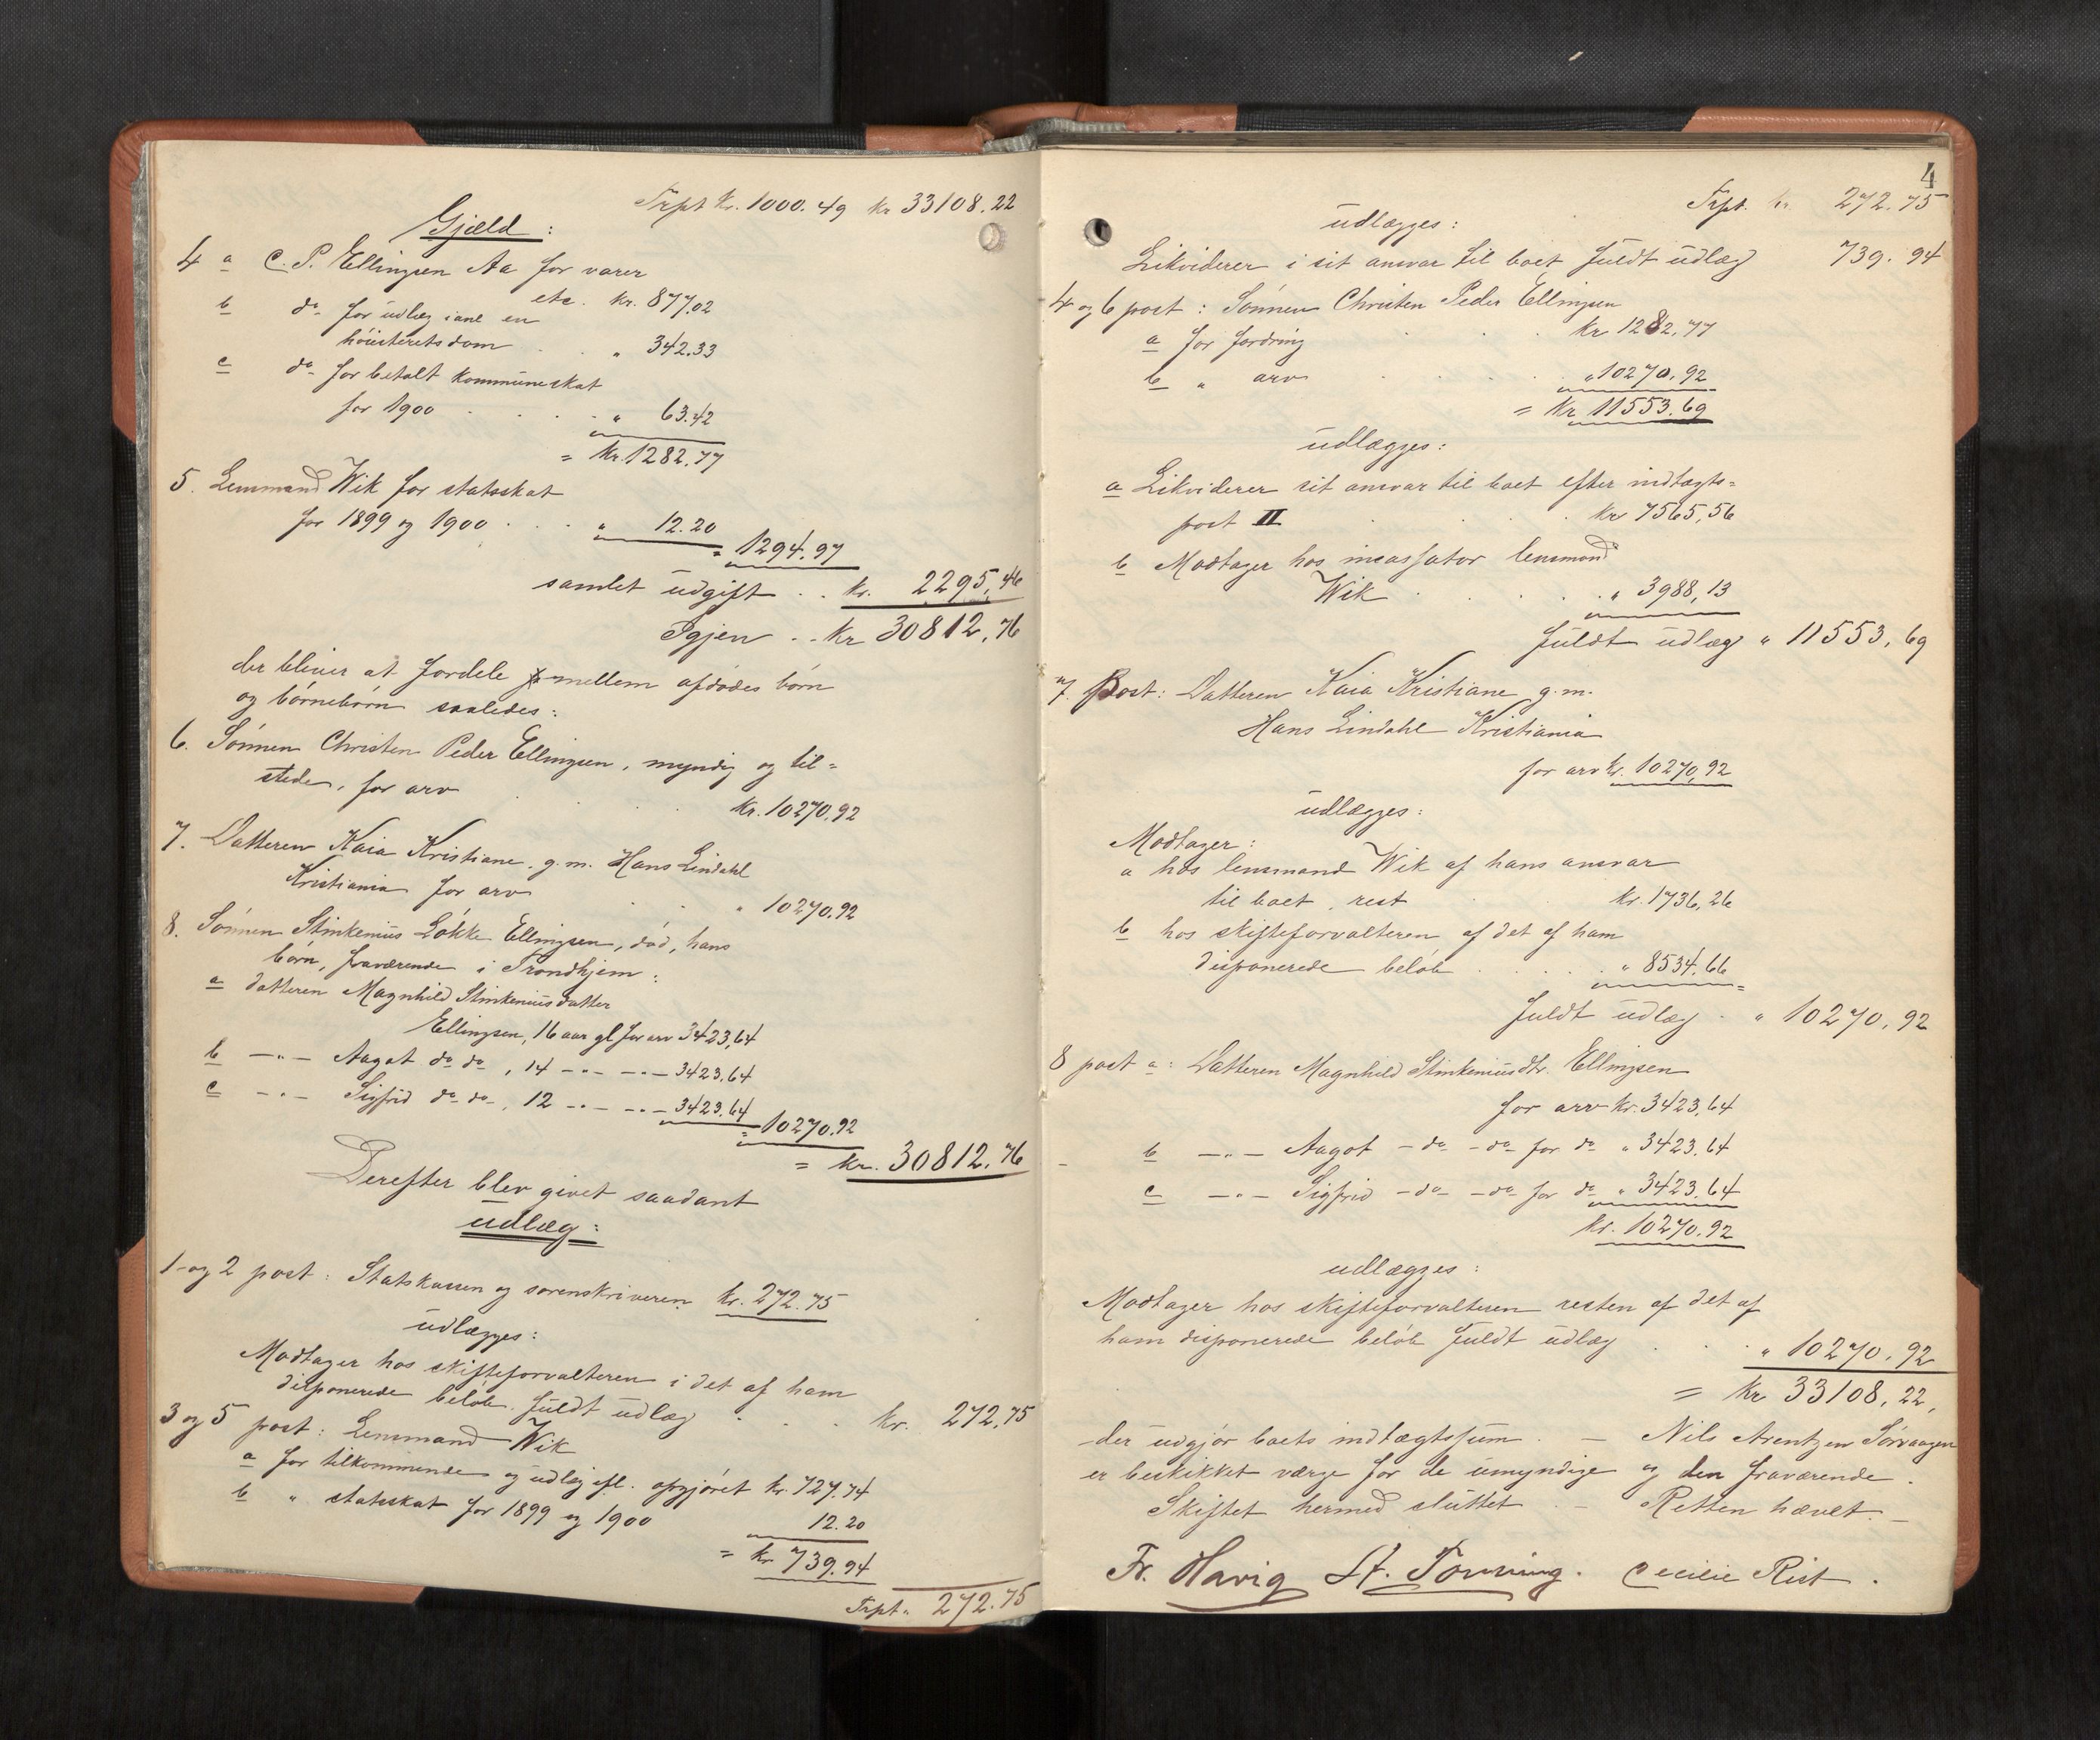 Trpt kr. 1000.49 kr 33108.22
Gjæld:
4 a C. P. Ellingsen Aa for varer
etc. kr. 877.02
b do for udlæg i anl en
höiesteretsdom . . „ 342.33
c do for betalt kommuneskat
for 1900 . . . . „ 63.42
= kr. 1282.77
5. Lensmand Wik for statsskat
for 1899 og 1900 . . . „ 12.20
= 1294.97
samlet udgift . . kr. 2295.46
Igjen . . kr 30812.76
der bliver at fordele mellem afdödes börn
og börnebörn saaledes:
6. Sönnen Christen Peder Ellingsen, myndig og til=
stede, for arv . . . . kr. 10270.92
7. Datteren Kaia Kristiane, g. m. Hans Lindahl
Kristiania for arv . . . „ 10270.92
8. Sönnen Stinkenius Lökke Ellingsen, död, hans
börn, fraværende i Trondhjem:
a datteren Magnhild Stinkeniusdatter
Ellingsen, 16 aar gl for arv 3423,64
b — „ — Aagot do do, 14 — „ — — „ — 3423.64
c — „ — Sigfrid do do, 12 — „ — — „ — 3423.64
= 10270.92
= kr. 30812.76
Derefter blev givet saadant
udlæg:
1- og 2 post: Statskassen og sorenskriveren kr. 272.75
udlægges:
Modtager hos skifteforvalteren i det af ham
disponerede belöb. fuldt udlæg . . . kr. 272.75
3 og 5 post: Lensmand Wik
a for tilkommende og udlæg efl. opgjöret kr. 727.74
b „ statsskat for 1899 og 1900 12.20
= kr 739.94
Trpt. 272.75
4
Trpt. kr. 272.75
udlægges:
Likviderer i sit ansvar til boet fuldt udlæg 739.94
4 og 6 post: Sönnen Christen Peder Ellingsen
a for fordring . . . kr 1282.77
b „ arv . . . . „ 10270.92
= kr 11553.69
udlægges:
a Likviderer sit ansvar til boet efter indtægts=
post II . . . . kr 7565,56
b Modtager hos incassator lensmand
Wik . . . . „ 3988,13
fuldt udlæg „ 11553,69
7. Post: Datteren Kaia Kristiane g. m.
Hans Lindahl Kristiania
for arv kr. 10270,92
udlægges:
Modtager:
a hos lensmand Wik af hans ansvar
til boet, rest . kr. 1736,26
b hos skifteforvalteren af det af ham
disponerede belöb . . . . „ 8534.66
fuldt udlæg . „ 10270,92
8 post a: Datteren Magnhild Stinkeniusdtr. Ellingsen
for arv kr. 3423,64
b — „ — Aagot — do — do for do „ 3423.64
c — „ — Sigfrid — do — do for do „ 3423.64
kr. 10270.92
udlægges:
Modtager hos skifteforvalteren resten af det af
ham disponerede belöb fuldt udlæg . . . „ 10270.92
= kr 33108,22,
der udgjör boets indtægtssum. — Nils Arentzen Sörvaagen
er beskikket værge for de umyndige og den fraværende.
Skiftet hermed sluttet. — Retten hævet. —
Fr. Havig St. Tönning. Cecilie Rist.